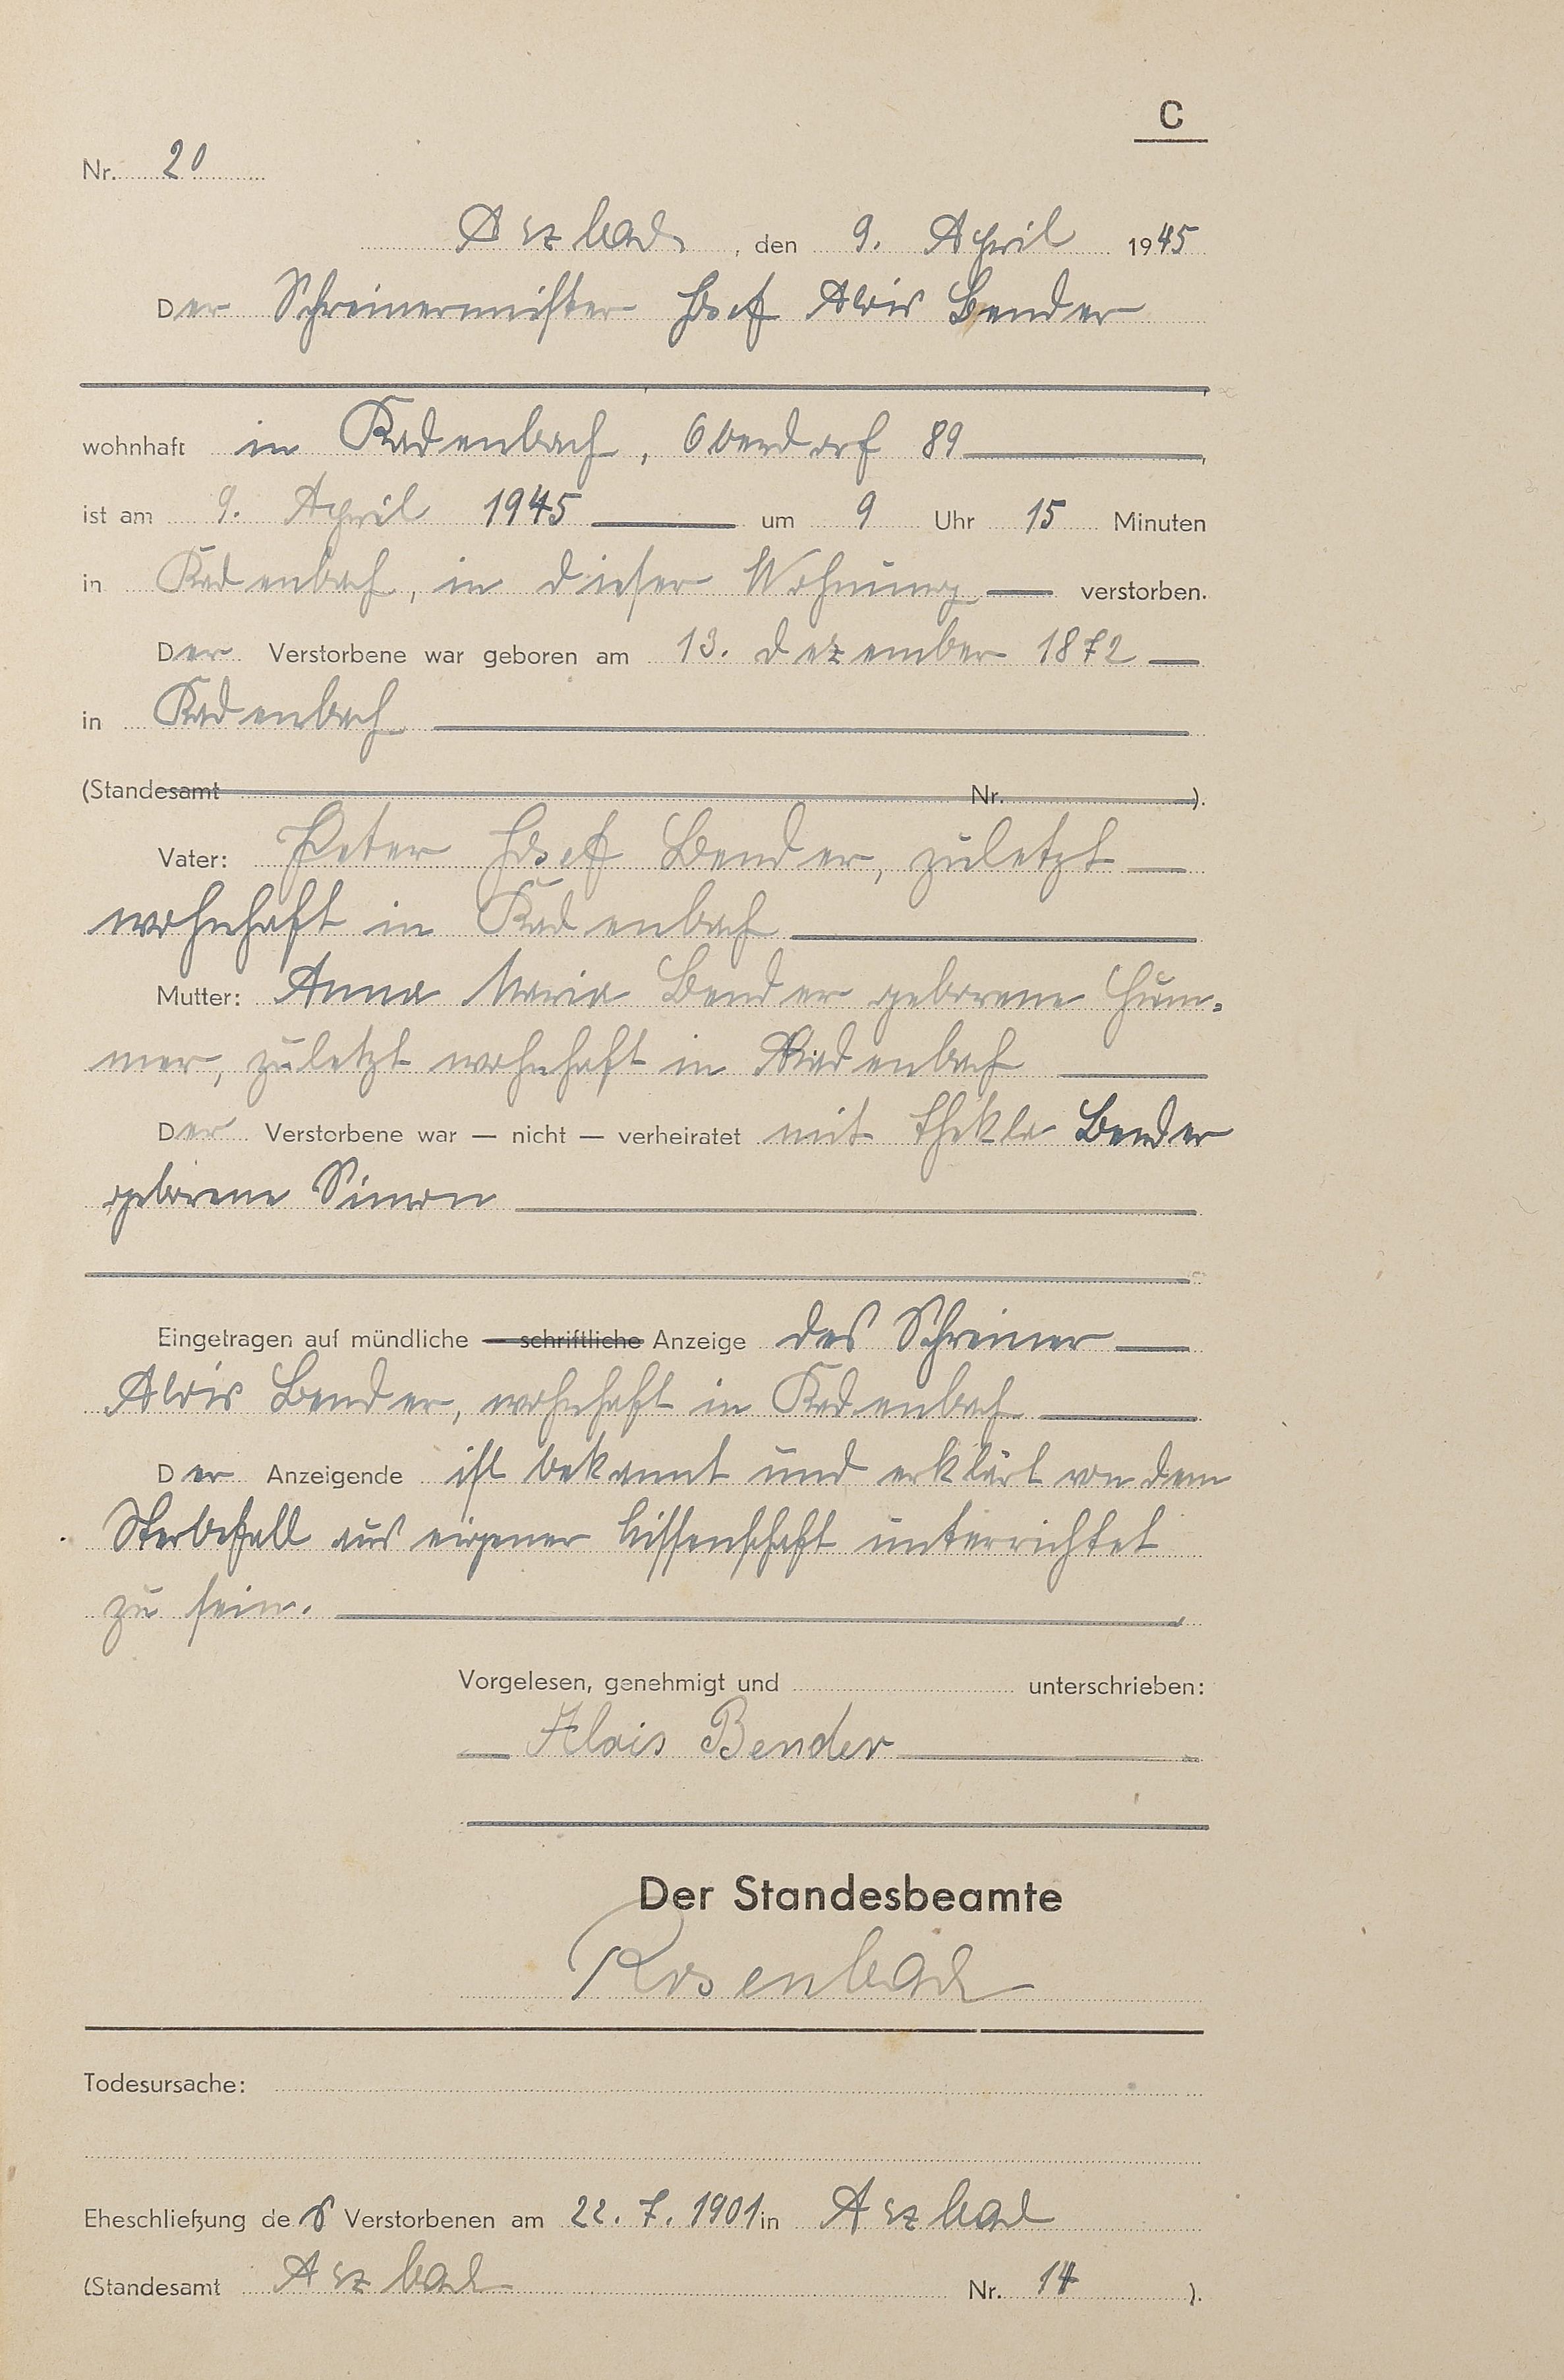 C
Nr. 20
Arzbach, den 9. April 1945
Der Schreinermeister Josef Alois Bender
wohnhaft in Kadenbach, Oberdorf 89
ist am 9. April 1945 um 9 Uhr 15 Minuten
in Kadenbach, in dieser Wohnung verstorben.
Der Verstorbene war geboren am 13. Dezember 1872
in Kadenbach
(Standesamt Nr. ).
Vater: Peter Josef Bender, zuletzt
wohnhaft in Kadenbach
Mutter: Anna Maria Bender geborene Hum=
mer, zuletzt wohnhaft in Kadenbach
Der Verstorbene war — nicht — verheiratet mit Thekla Bender
geborene Simon
Eingetragen auf mündliche — schriftliche Anzeige des Schreiner
Alois Bender, wohnhaft in Kadenbach
Der Anzeigende ist bekannt und erklärt von dem
Sterbefall aus eigener Wissenschaft unterrichtet
zu sein.
Vorgelesen, genehmigt und unterschrieben:
Alois Bender
Der Standesbeamte
Rosenbach
Todesursache:
Eheschließung des Verstorbenen am 22. 7. 1901 in Arzbach
(Standesamt Arzbach Nr. 14 ).